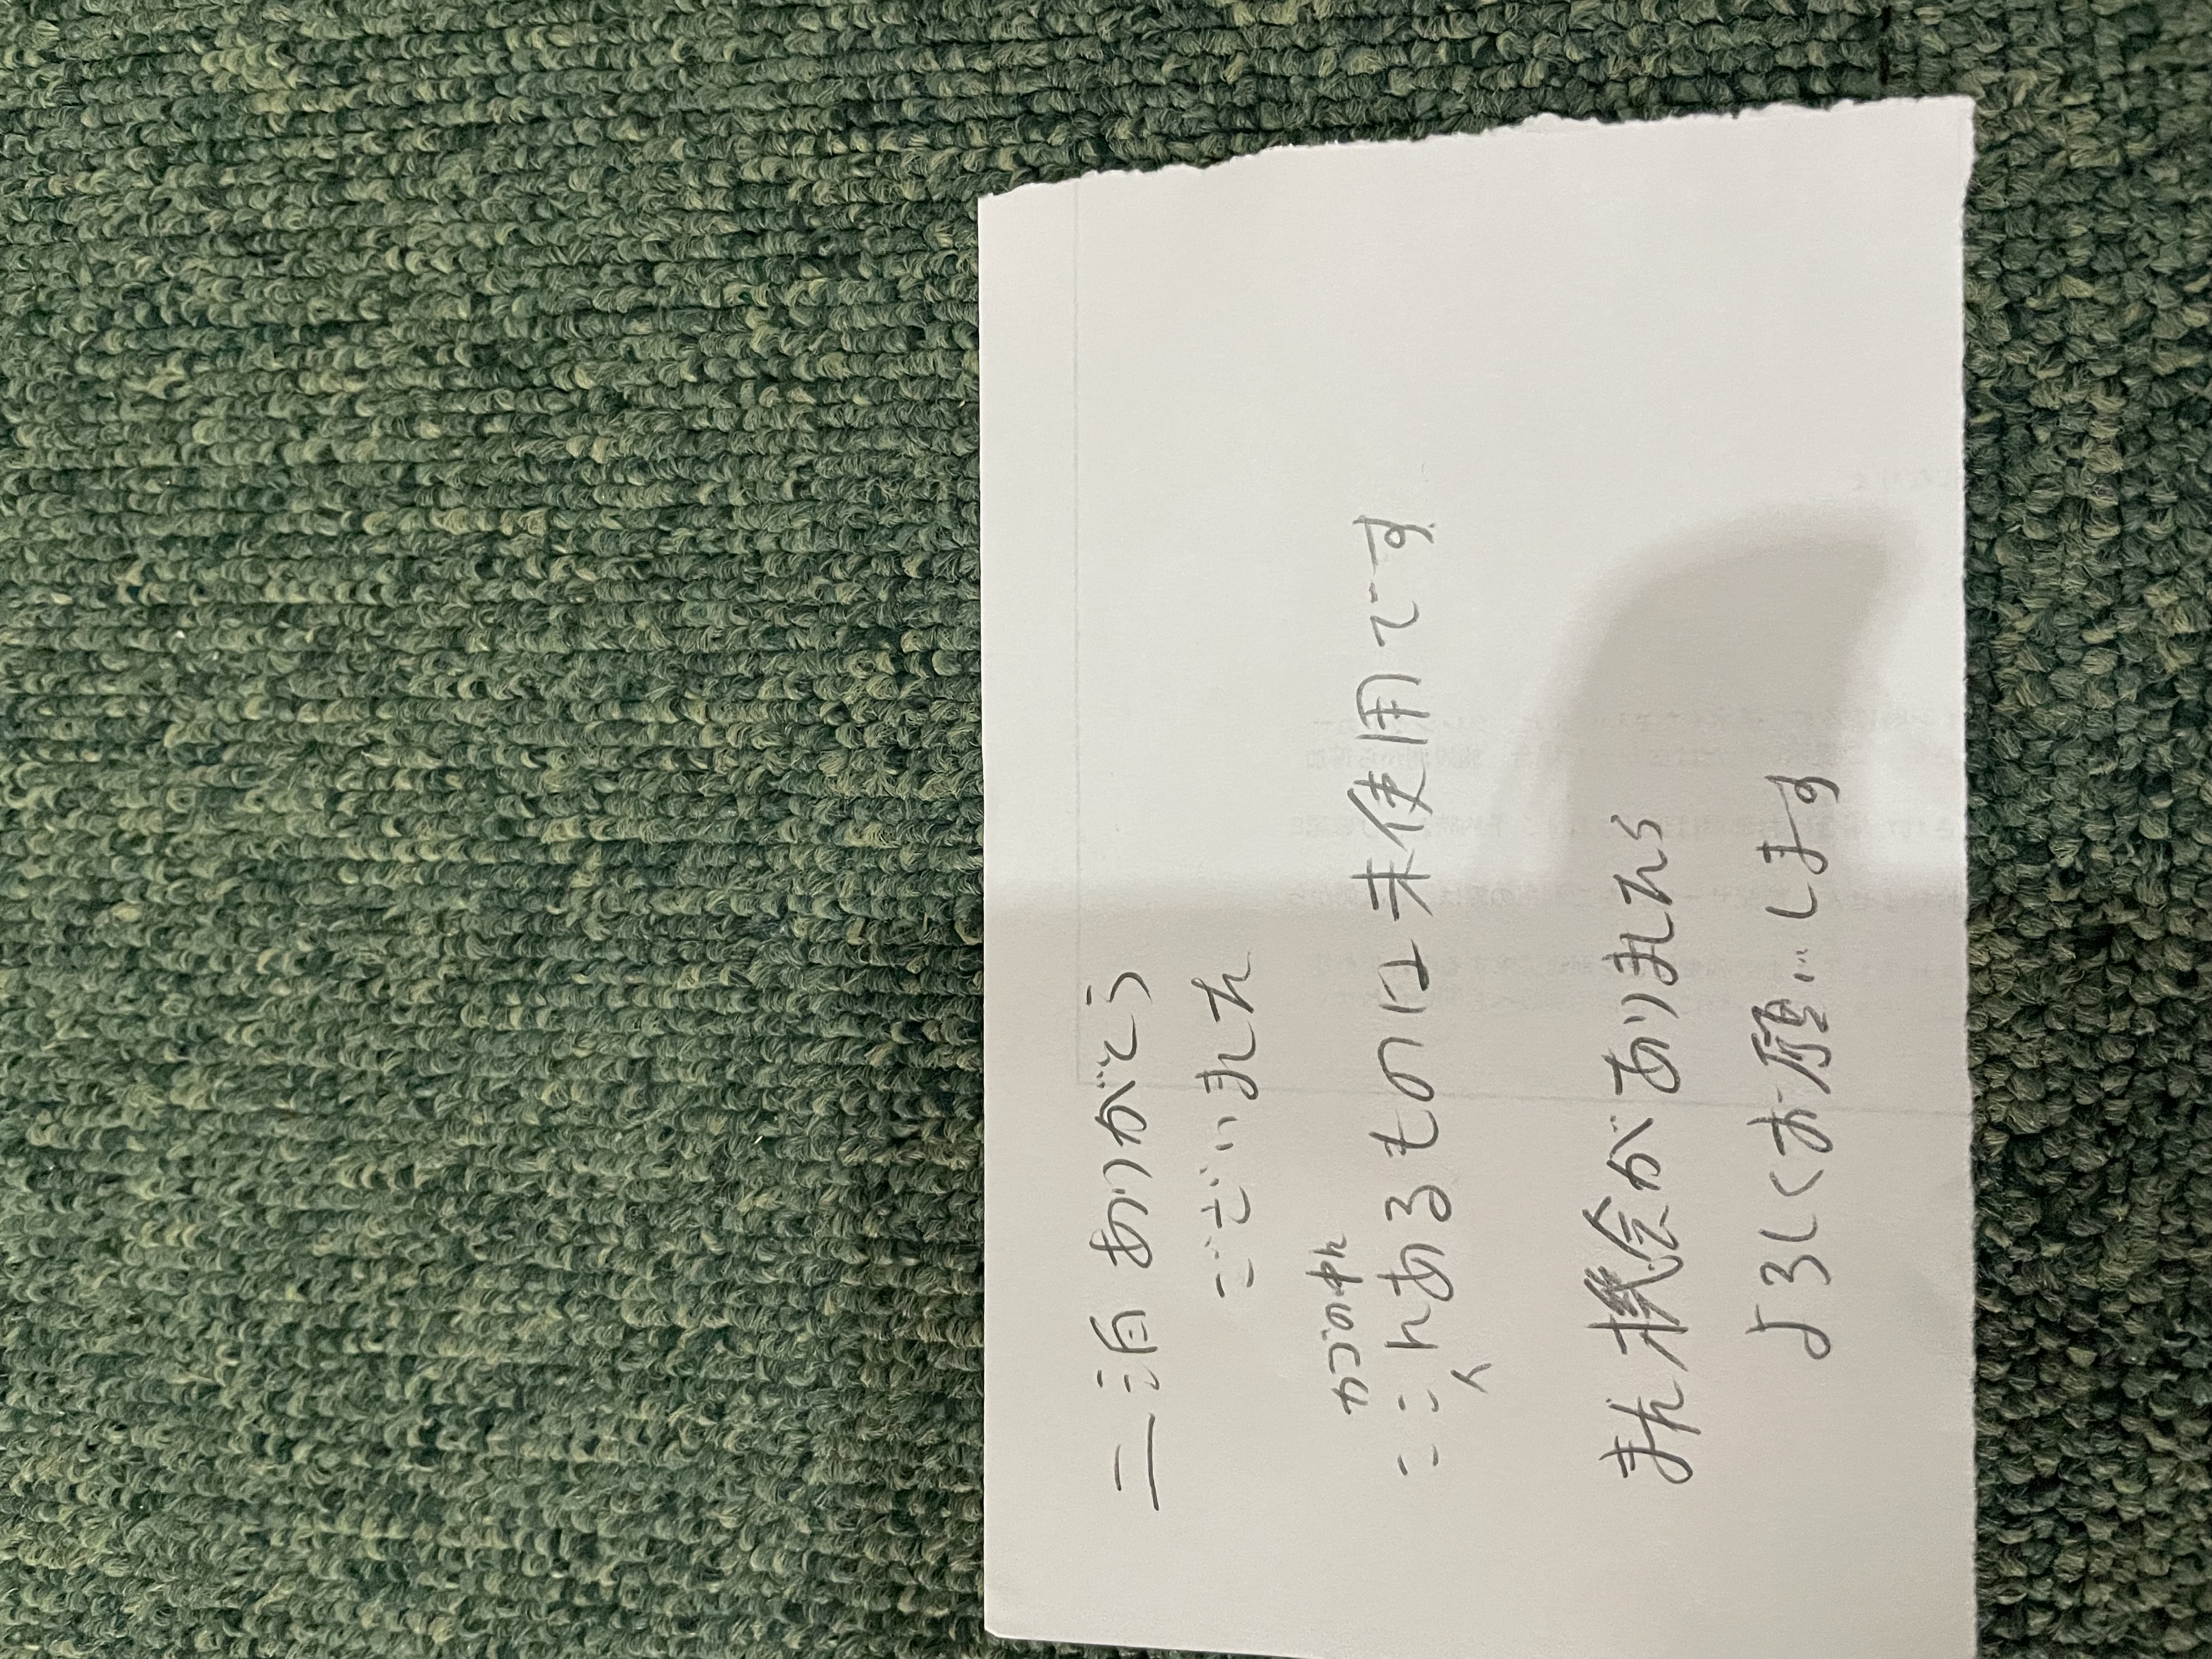 二泊ありがとう
ございました
カゴの中に
ここにあるものは未使用です
また機会がありましたら
よろしくお願いします